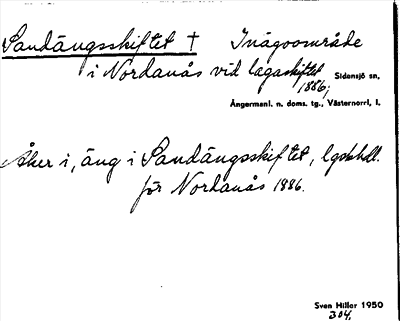 Sandängsskiftet † Inägoområde
i Nordanås vid lagaskiftet Sidensjö sn,
1886;
Ångermanl. n. doms. tg., Västernorrl. l.
Åker i, äng i Sandängsskiftet, lgskhdl.
för Nordanås 1886.
Sven Hillar 1950
304.